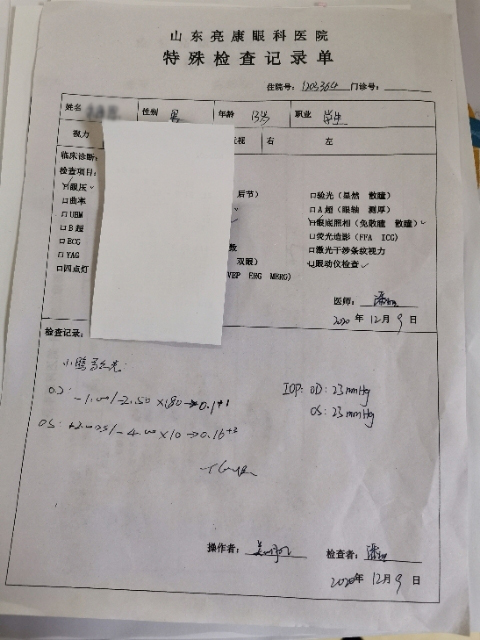 山东亮康眼科医院
特殊检查记录单
住院号: 1203364 门诊号:
姓名 性别 男 年龄 13岁 职业 学生
视力 视 右 左
临床诊断:
检查项目:
☑眼压√ 后节) □验光(显然 散瞳)
□曲率 □A超(眼轴 测厚)
□UBM √ ☑眼底照相(免散瞳 散瞳)√
□B超 □荧光造影(FFA ICG)
□ECG 数 □激光干涉条纹视力
□YAG 双眼) ☑眼动仪检查√
□四点灯 VEP ERG MERG)
医师:
2020年12月9日
检查记录:
小瞳
O.D: -1.00/-2.50×180→0.1+1 IOP: OD: 23mmHg
O.S: /-4.00×10→0.16+2 OS: 23mmHg
操作者: 检查者:
2020年12月9日